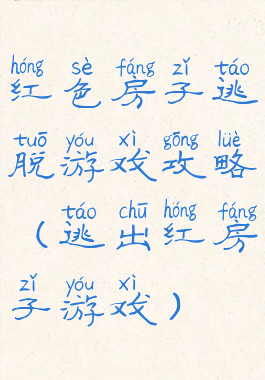 hóng sè fáng zǐ táo
红色房子逃
tuō yóu xì gōng lüè
脱游戏攻略
táo chū hóng fáng
（逃出红房
zǐ yóu xì
子游戏）